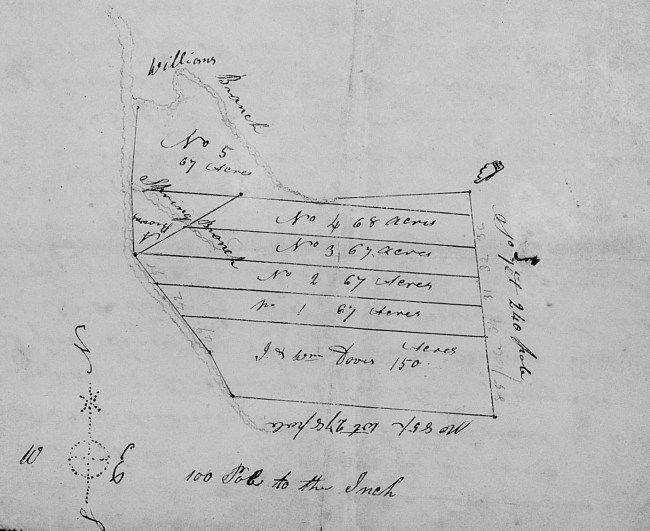 Williams
Branch
No 5
67 Acres
Spring Branch
No 4 68 Acres
No 3 67 Acres
No 2 67 Acres
No 1 67 Acres
J. & Wm Dover 150 Acres
240 pole
N
W
E
S
100 Pole to the Inch